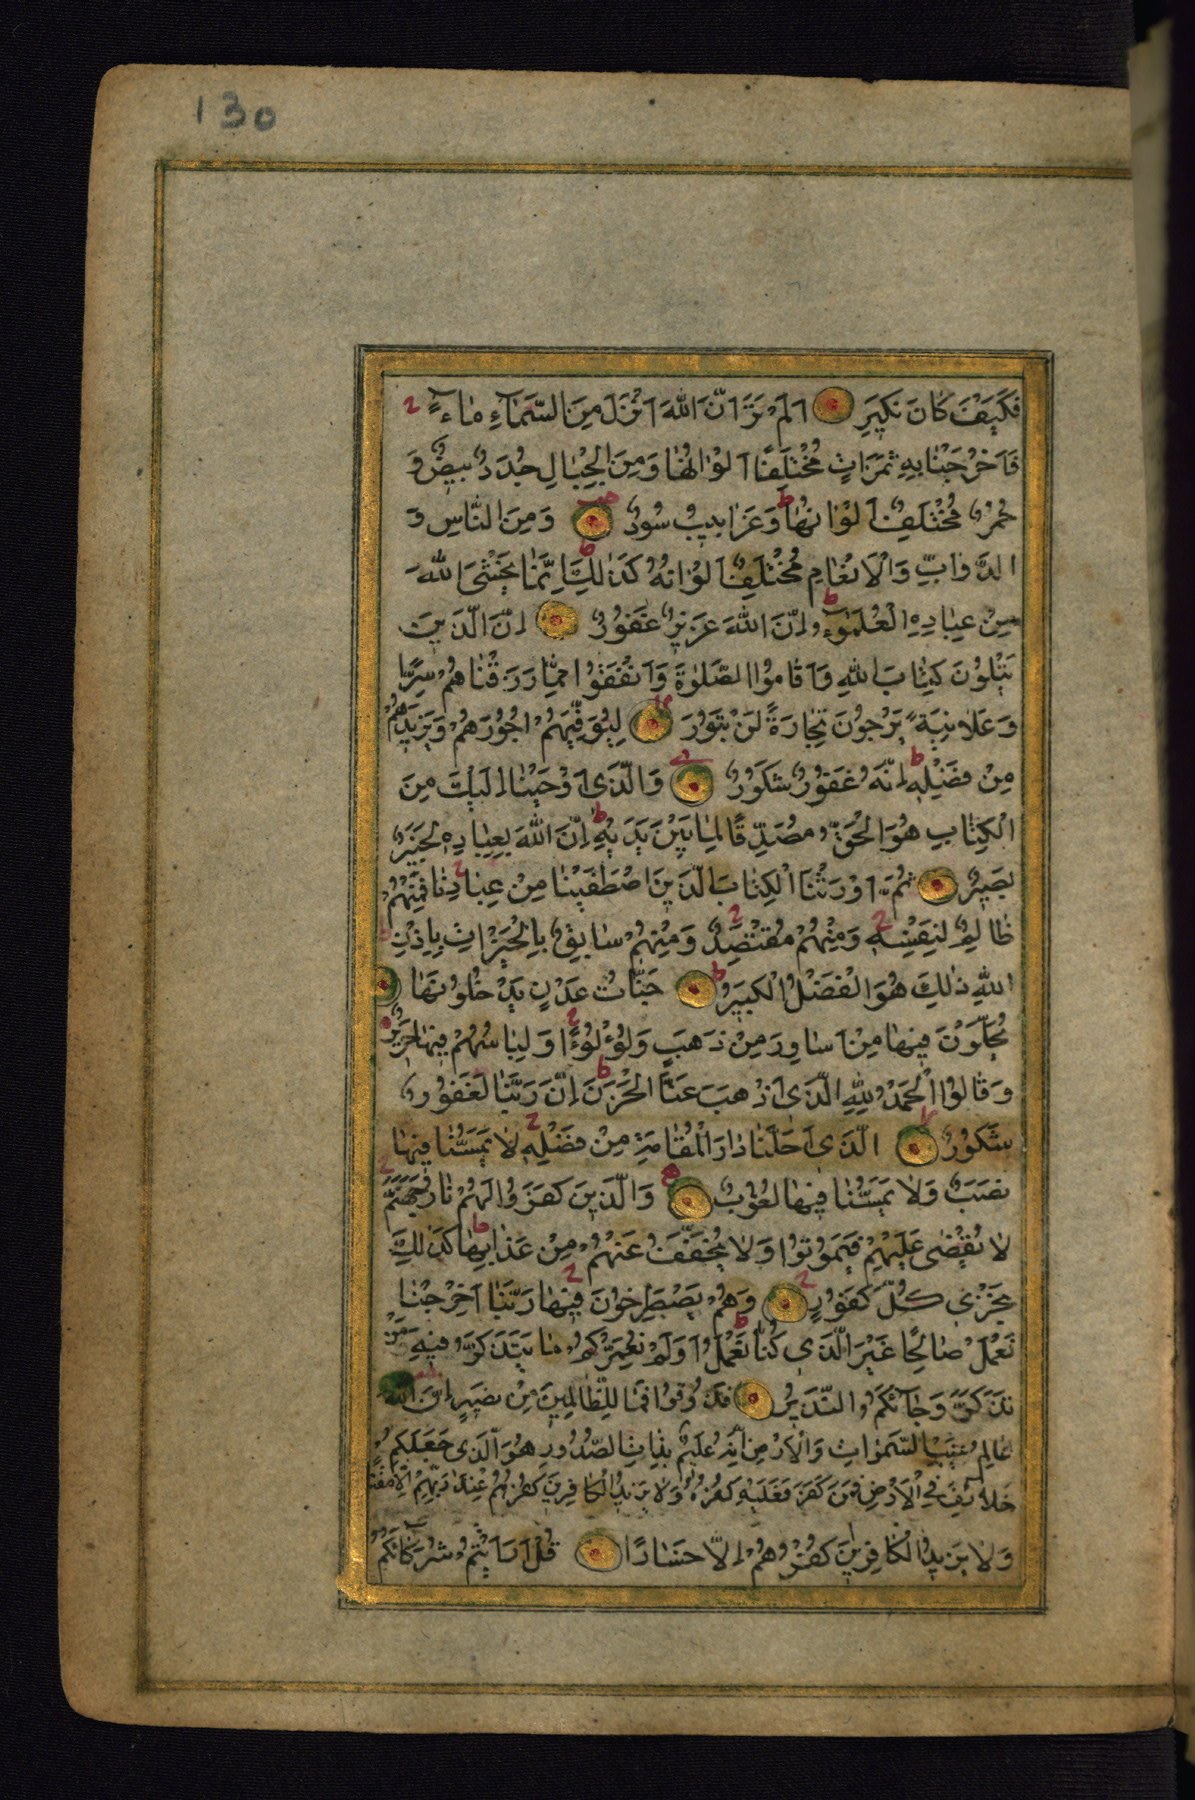 130
فَكَيْفَ كَانَ نَكِيرِ اَلَمْ تَرَ اَنَّ اللّٰهَ اَنْزَلَ مِنَ السَّمَاءِ مَاءً
فَاَخْرَجْنَا بِهِ ثَمَرَاتٍ مُخْتَلِفًا اَلْوَانُهَا وَمِنَ الْجِبَالِ جُدَدٌ بِيضٌ وَ
حُمْرٌ مُخْتَلِفٌ اَلْوَانُهَا وَغَرَابِيبُ سُودٌ وَمِنَ النَّاسِ وَ
الدَّوَابِّ وَالْاَنْعَامِ مُخْتَلِفٌ اَلْوَانُهُ كَذٰلِكَ اِنَّمَا يَخْشَى اللّٰهَ
مِنْ عِبَادِهِ الْعُلَمٰؤُ اِنَّ اللّٰهَ عَزِيزٌ غَفُورٌ اِنَّ الَّذِينَ
يَتْلُونَ كِتَابَ اللّٰهِ وَاَقَامُوا الصَّلٰوةَ وَاَنْفَقُوا مِمَّا رَزَقْنَاهُمْ سِرًّا
وَعَلَانِيَةً يَرْجُونَ تِجَارَةً لَنْ تَبُورَ لِيُوَفِّيَهُمْ اُجُورَهُمْ وَيَزِيدَهُمْ
مِنْ فَضْلِهِ اِنَّهُ غَفُورٌ شَكُورٌ وَالَّذِى اَوْحَيْنَا اِلَيْكَ مِنَ
الْكِتَابِ هُوَ الْحَقُّ مُصَدِّقًا لِمَا بَيْنَ يَدَيْهِ اِنَّ اللّٰهَ بِعِبَادِهِ لَخَبِيرٌ
بَصِيرٌ ثُمَّ اَوْرَثْنَا الْكِتَابَ الَّذِينَ اصْطَفَيْنَا مِنْ عِبَادِنَا فَمِنْهُمْ
ظَالِمٌ لِنَفْسِهِ وَمِنْهُمْ مُقْتَصِدٌ وَمِنْهُمْ سَابِقٌ بِالْخَيْرَاتِ بِاِذْنِ
اللّٰهِ ذٰلِكَ هُوَ الْفَضْلُ الْكَبِيرُ جَنَّاتُ عَدْنٍ يَدْخُلُونَهَا
يُحَلَّوْنَ فِيهَا مِنْ اَسَاوِرَ مِنْ ذَهَبٍ وَلُؤْلُؤًا وَلِبَاسُهُمْ فِيهَا حَرِيرٌ
وَقَالُوا الْحَمْدُ لِلّٰهِ الَّذِى اَذْهَبَ عَنَّا الْحَزَنَ اِنَّ رَبَّنَا لَغَفُورٌ
شَكُورٌ الَّذِى اَحَلَّنَا دَارَ الْمُقَامَةِ مِنْ فَضْلِهِ لَا يَمَسُّنَا فِيهَا
نَصَبٌ وَلَا يَمَسُّنَا فِيهَا لُغُوبٌ وَالَّذِينَ كَفَرُوا لَهُمْ نَارُ جَهَنَّمَ
لَا يُقْضٰى عَلَيْهِمْ فَيَمُوتُوا وَلَا يُخَفَّفُ عَنْهُمْ مِنْ عَذَابِهَا كَذٰلِكَ
نَجْزِى كُلَّ كَفُورٍ وَهُمْ يَصْطَرِخُونَ فِيهَا رَبَّنَا اَخْرِجْنَا
نَعْمَلْ صَالِحًا غَيْرَ الَّذِى كُنَّا نَعْمَلُ اَوَلَمْ نُعَمِّرْكُمْ مَا يَتَذَكَّرُ فِيهِ مَنْ
تَذَكَّرَ وَجَائَكُمُ النَّذِيرُ فَذُوقُوا فَمَا لِلظَّالِمِينَ مِنْ نَصِيرٍ اِنَّ اللّٰهَ
عَالِمُ غَيْبِ السَّمٰوَاتِ وَالْاَرْضِ اِنَّهُ عَلِيمٌ بِذَاتِ الصُّدُورِ هُوَ الَّذِى جَعَلَكُمْ
خَلَائِفَ فِى الْاَرْضِ فَمَنْ كَفَرَ فَعَلَيْهِ كُفْرُهُ وَلَا يَزِيدُ الْكَافِرِينَ كُفْرُهُمْ عِنْدَ رَبِّهِمْ اِلَّا مَقْتًا
وَلَا يَزِيدُ الْكَافِرِينَ كُفْرُهُمْ اِلَّا خَسَارًا قُلْ اَرَاَيْتُمْ شُرَكَائَكُمُ